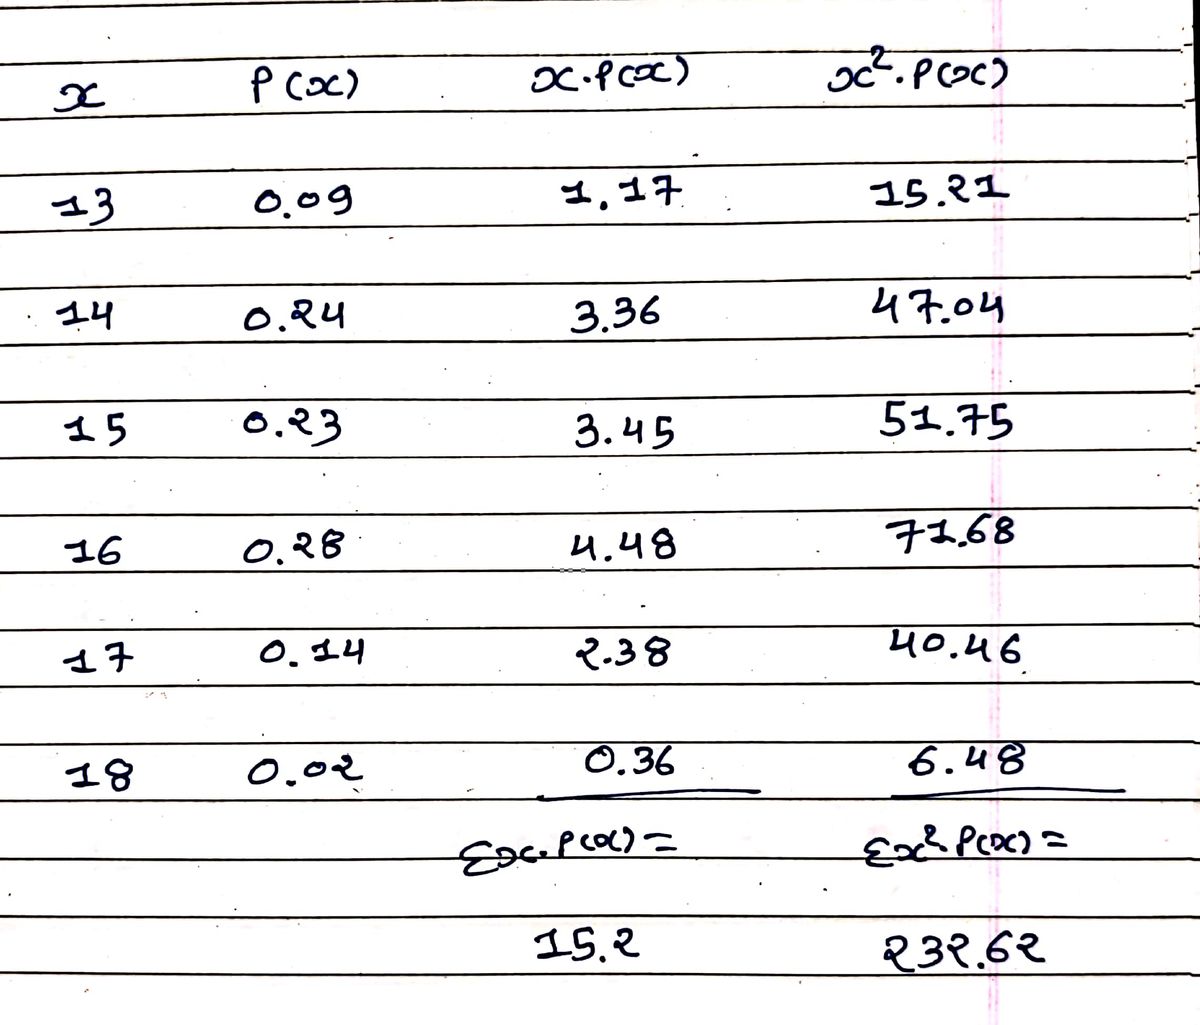 x P(x) x·P(x) x²·P(x)
13 0.09 1.17 15.21
14 0.24 3.36 47.04
15 0.23 3.45 51.75
16 0.28 4.48 71.68
17 0.14 2.38 40.46
18 0.02 0.36 6.48
Σx·P(x)= Σx²·P(x)=
15.2 232.62